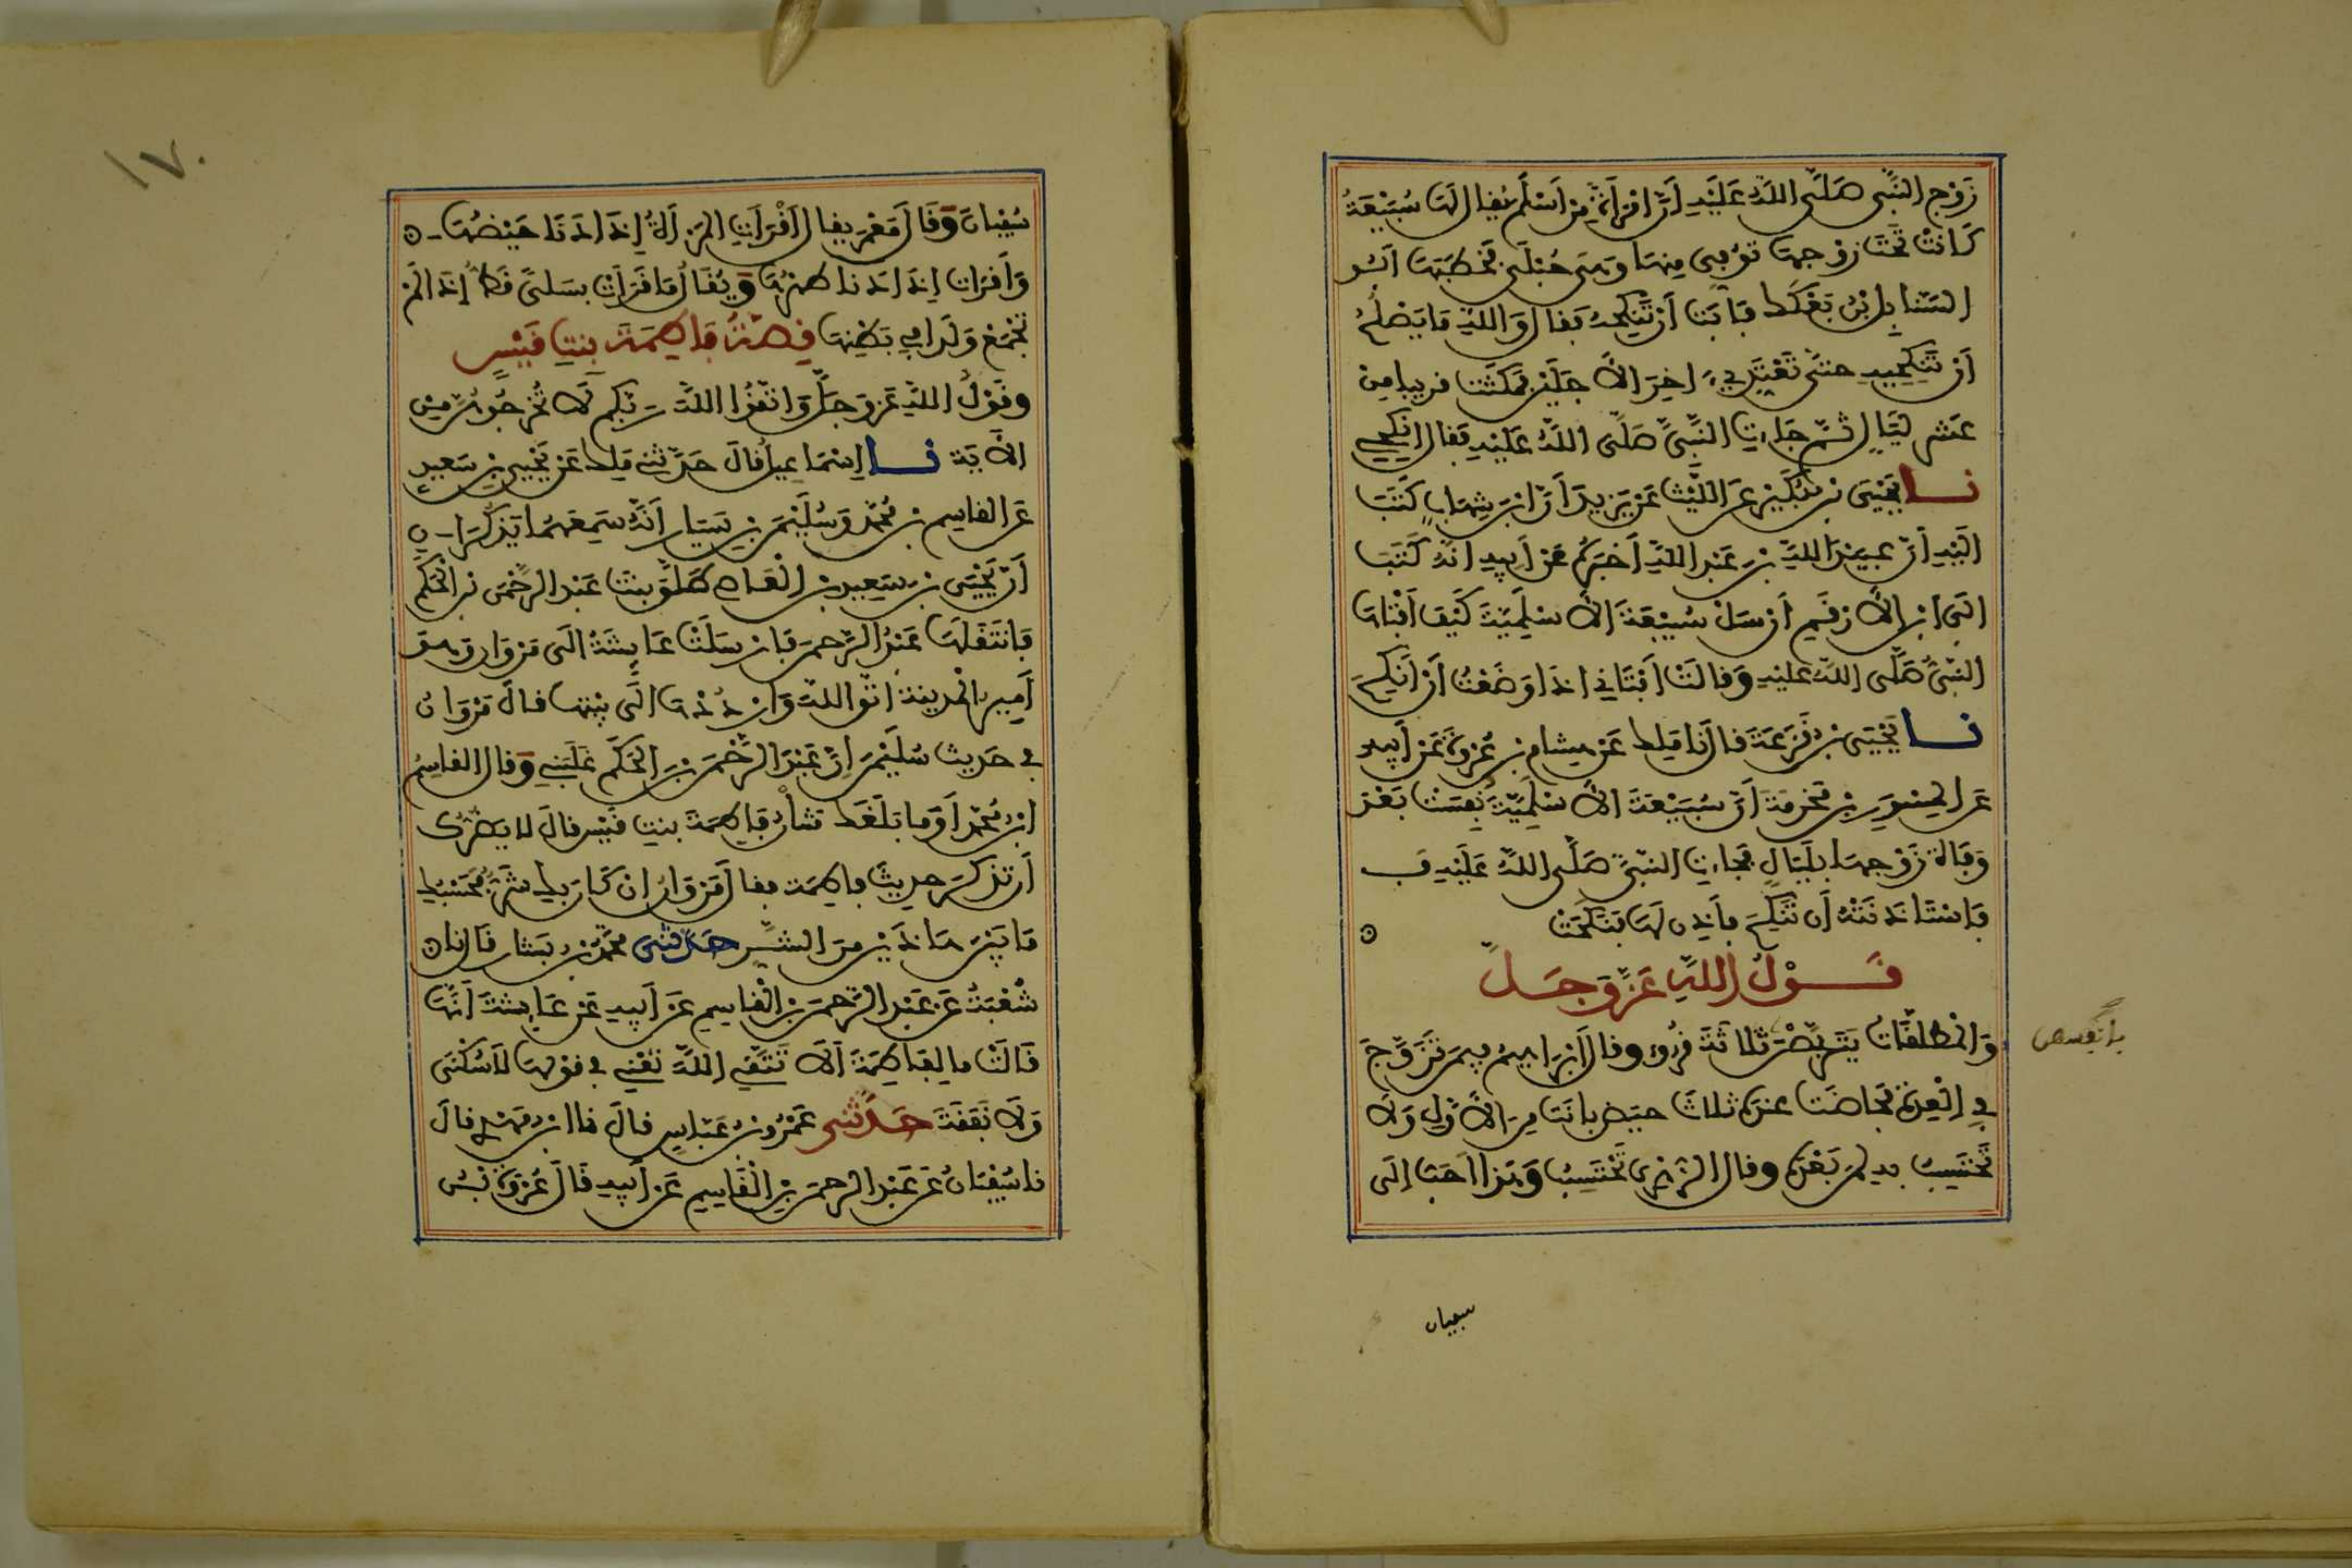 زَوْجِ النَّبِيِّ صَلَّى اللَّهُ عَلَيْهِ أَنَّ امْرَأَةً مِنْ أَسْلَمَ يُقَالُ لَهَا سُبَيْعَةُ
كَانَتْ تَحْتَ زَوْجِهَا تُوُفِّيَ عَنْهَا وَهِيَ حُبْلَى فَخَطَبَهَا أَبُو
السَّنَابِلِ بْنُ بَعْكَكٍ فَأَبَتْ أَنْ تَنْكِحَهُ فَقَالَ وَاللَّهِ مَا يَصْلُحُ
أَنْ تَنْكِحِيهِ حَتَّى تَعْتَدِّي آخِرَ الأَجَلَيْنِ فَمَكَثَتْ قَرِيبًا مِنْ
عَشْرِ لَيَالٍ ثُمَّ جَاءَتِ النَّبِيَّ صَلَّى اللَّهُ عَلَيْهِ فَقَالَ انْكِحِي
نا يَحْيَى بْنُ بُكَيْرٍ عَنِ اللَّيْثِ عَنْ يَزِيدَ أَنَّ ابْنَ شِهَابٍ كَتَبَ
إِلَيْهِ أَنَّ عُبَيْدَ اللَّهِ بْنَ عَبْدِ اللَّهِ أَخْبَرَهُ عَنْ أَبِيهِ أَنَّهُ كَتَبَ
إِلَى ابْنِ الأَرْقَمِ أَنْ سَلْ سُبَيْعَةَ الأَسْلَمِيَّةَ كَيْفَ أَفْتَاهَا
النَّبِيُّ صَلَّى اللَّهُ عَلَيْهِ وَقَالَتْ أَفْتَانِي إِذَا وَضَعْتُ أَنْ أَنْكِحَ
نا يَحْيَى بْنُ قَزَعَةَ قَالَ نَا مَلِك عَنْ هِشَامِ بْنِ عُرْوَةَ عَنْ أَبِيهِ
عَنِ الْمِسْوَرِ بْنِ مَخْرَمَةَ أَنَّ سُبَيْعَةَ الأَسْلَمِيَّةَ نُفِسَتْ بَعْدَ
وَفَاةِ زَوْجِهَا بِلَيَالٍ فَجَاءَتِ النَّبِيَّ صَلَّى اللَّهُ عَلَيْهِ فَ
فَاسْتَأْذَنَتْهُ أَنْ تَنْكِحَ فَأَذِنَ لَهَا فَنَكَحَتْ
قَوْلُ اللَّهِ عَزَّ وَجَلَّ
وَالْمُطَلَّقَاتُ يَتَرَبَّصْنَ ثَلَاثَةَ قُرُوءٍ وَقَالَ إِبْرَاهِيمُ فِيمَنْ تَزَوَّجَ
فِي الْعِدَّةِ فَحَاضَتْ عِنْدَهُ ثَلَاثَ حِيَضٍ بَانَتْ مِنَ الأَوَّلِ وَلَا
تَحْتَسِبُ بِهِ لِمَنْ بَعْدَهُ وَقَالَ الزُّهْرِيُّ تَحْتَسِبُ وَهَذَا أَحَبُّ إِلَى
بأنفسهن
سفيان
١٧٠
سُفْيَانَ وَقَالَ مَعْمَرٌ يُقَالُ أَقْرَأَتِ الْمَرْأَةُ إِذَا دَنَا حَيْضُهَا
وَأَقْرَأَتْ إِذَا دَنَا طُهْرُهَا وَيُقَالُ مَا قَرَأَتْ بِسَلًى قَطُّ إِذَا لَمْ
تَجْمَعْ وَلَدًا فِي بَطْنِهَا قِصَّةُ فَاطِمَةَ بِنْتِ قَيْسٍ
وَقَوْلُ اللَّهِ عَزَّ وَجَلَّ وَاتَّقُوا اللَّهَ رَبَّكُمْ لَا تُخْرِجُوهُنَّ مِنْ
الآيَةَ نا إِسْمَاعِيلُ قَالَ حَدَّثَنِي مَلِك عَنْ يَحْيَى بْنِ سَعِيدٍ
عَنِ الْقَاسِمِ بْنِ مُحَمَّدٍ وَسُلَيْمَنَ بْنِ يَسَارٍ أَنَّهُ سَمِعَهُمَا يَذْكُرَانِ
أَنَّ يَحْيَى بْنَ سَعِيدِ بْنِ الْعَاصِ طَلَّقَ بِنْتَ عَبْدِ الرَّحْمَنِ بْنِ الْحَكَمِ
فَانْتَقَلَهَا عَبْدُ الرَّحْمَنِ فَأَرْسَلَتْ عَائِشَةُ إِلَى مَرْوَانَ وَهُوَ
أَمِيرُ الْمَدِينَةِ اتَّقِ اللَّهَ وَارْدُدْهَا إِلَى بَيْتِهَا قَالَ مَرْوَانُ
فِي حَدِيثِ سُلَيْمَنَ إِنَّ عَبْدَ الرَّحْمَنِ بْنَ الْحَكَمِ غَلَبَنِي وَقَالَ الْقَاسِمُ
ابْنُ مُحَمَّدٍ أَوَمَا بَلَغَكِ شَأْنُ فَاطِمَةَ بِنْتِ قَيْسٍ قَالَ لَا يَضُرُّكَ
أَنْ تَذْكُرَ حَدِيثَ فَاطِمَةَ فَقَالَ مَرْوَانُ إِنْ كَانَ بِكِ شَرٌّ فَحَسْبُكِ
مَا بَيْنَ هَاذَيْنِ مِنَ الشَّرِّ حَدَّثَنِي مُحَمَّدُ بْنُ بَشَّارٍ قَالَ نا
شُعْبَةُ عَنْ عَبْدِ الرَّحْمَنِ بْنِ الْقَاسِمِ عَنْ أَبِيهِ عَنْ عَائِشَةَ أَنَّهَا
قَالَتْ مَا لِفَاطِمَةَ أَلَا تَتَّقِي اللَّهَ تَعْنِي فِي قَوْلِهَا لَا سُكْنَى
وَلَا نَفَقَةَ حَدَّثَنِي عَمْرُو بْنُ عَبَّاسٍ قَالَ نا ابْنُ مَهْدِيٍّ قَالَ
نا سُفْيَانُ عَنْ عَبْدِ الرَّحْمَنِ بْنِ الْقَاسِمِ عَنْ أَبِيهِ قَالَ عُرْوَةُ بْنُ